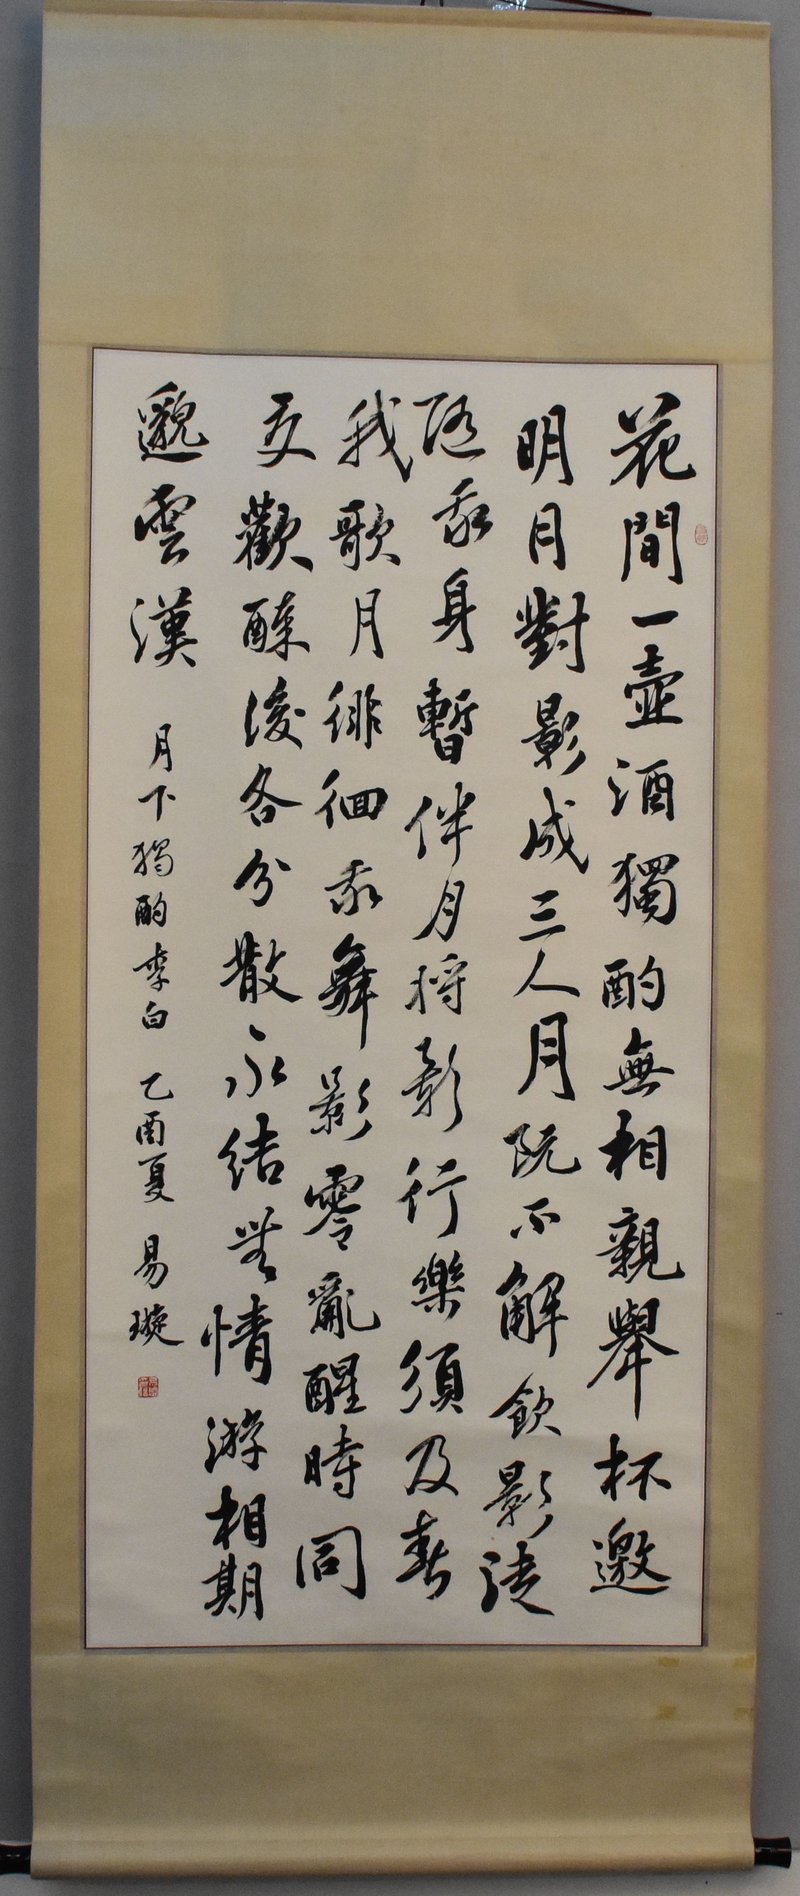 花間一壺酒獨酌無相親舉杯邀
明月對影成三人月既不解飲影徒
隨我身暫伴月將影行樂須及春
我歌月徘徊我舞影零亂醒時同
交歡醉後各分散永結無情游相期
邈雲漢
月下獨酌李白 乙酉夏 易璇